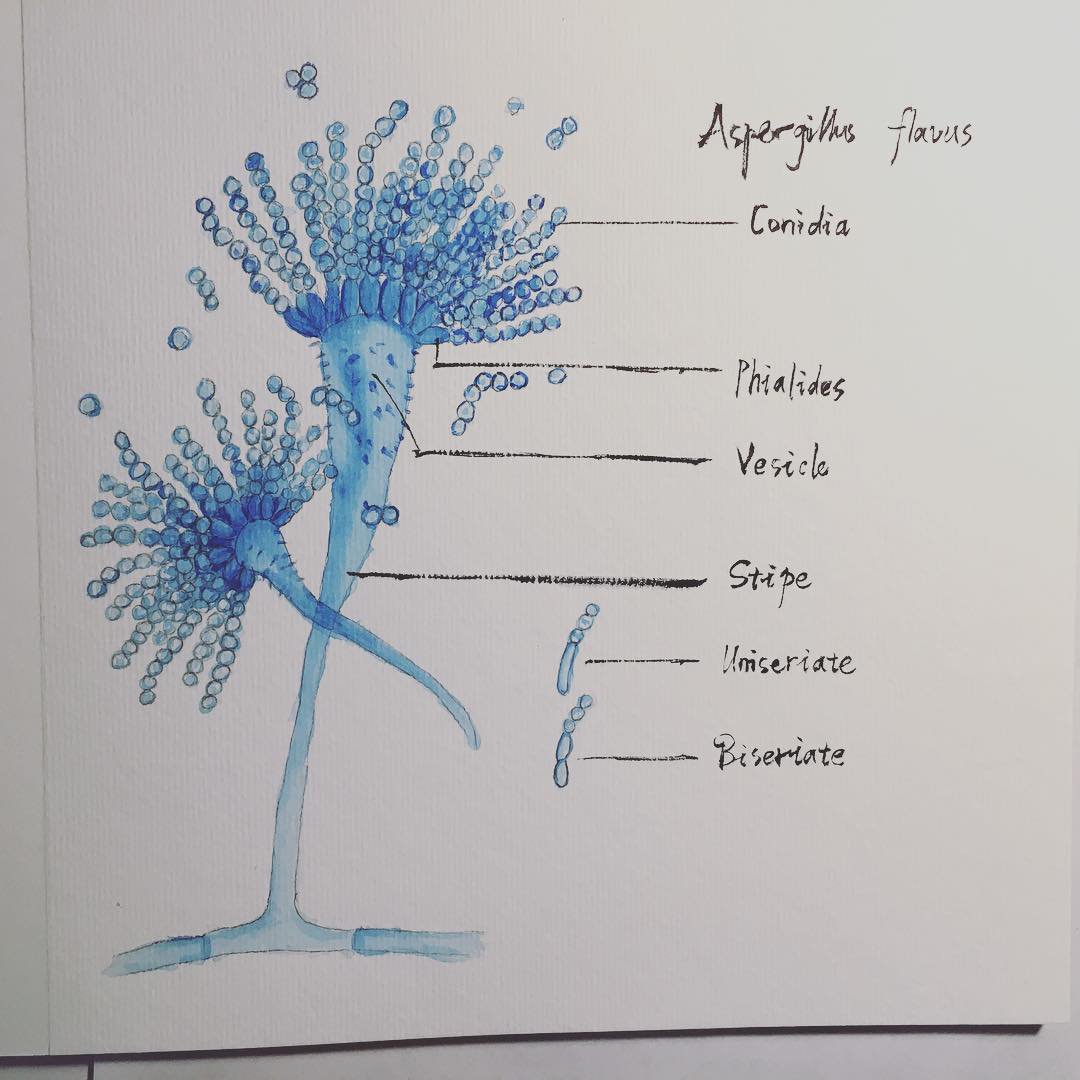 Aspergillus flavus
Conidia
Phialides
Vesicle
Stipe
Uniseriate
Biseriate